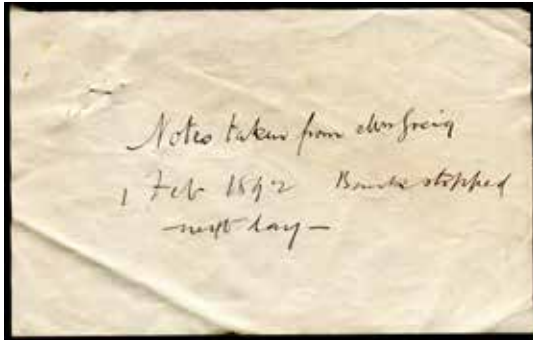 Notes taken from Mrs Greig
1 Feb 1892 stopped
next day —